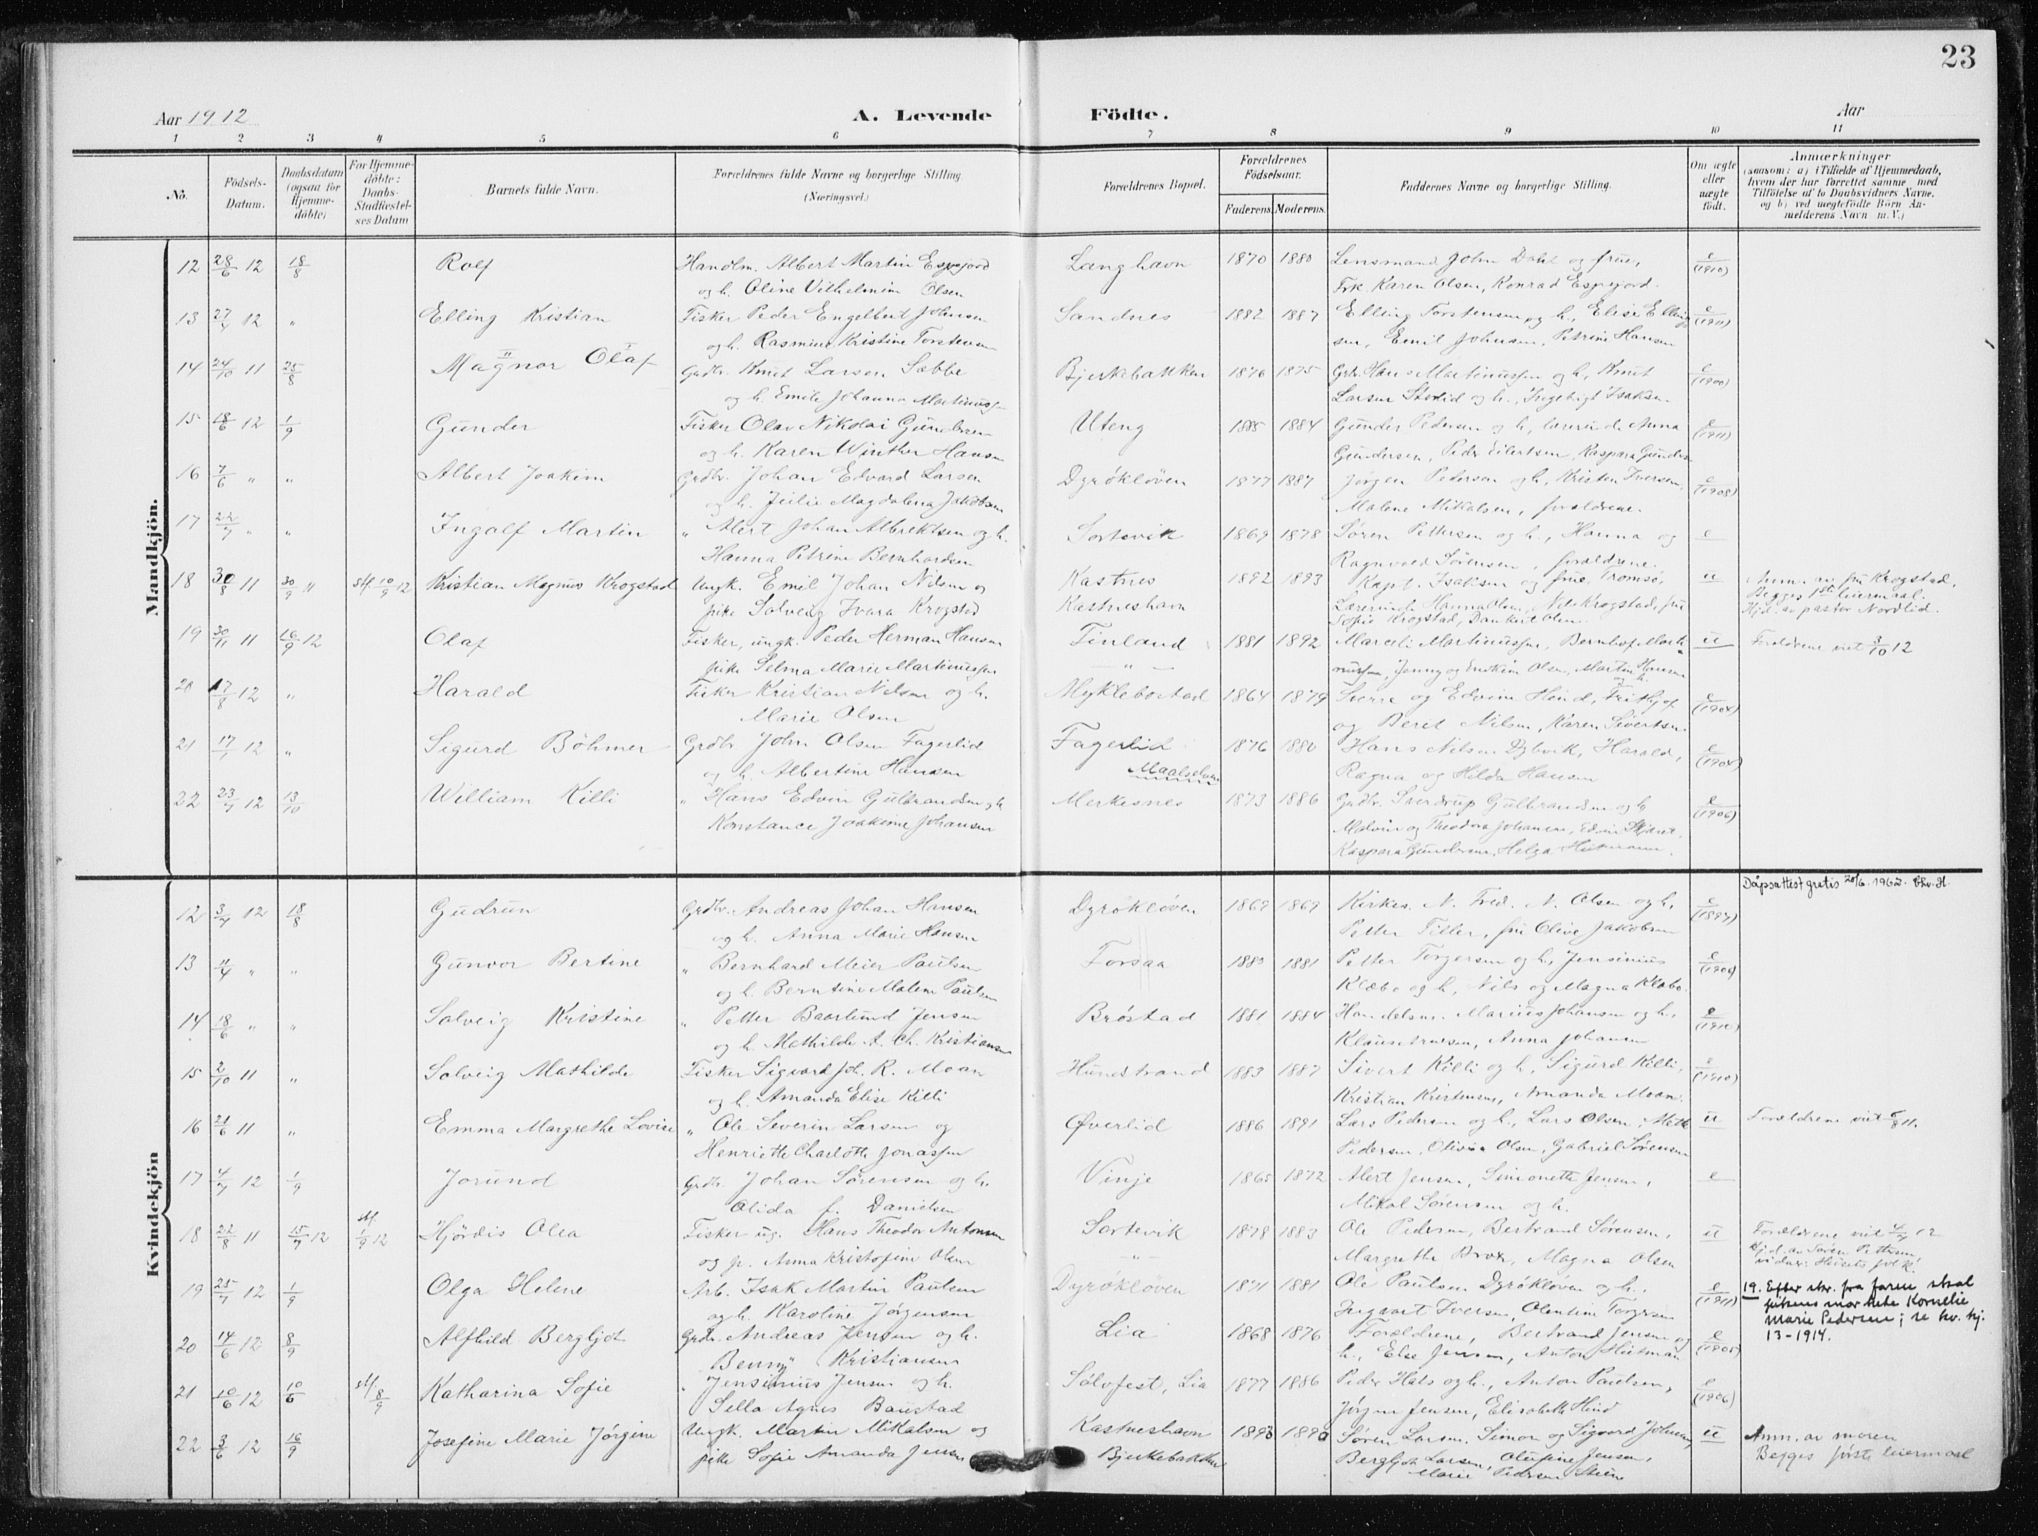 23
Aar 1912
A. Levende
Födte.
Aar
1 2 3 4 5 6 7 8 9 10 11
No.
Födsels-Datum.
Daabsdatum (ogsaa for Hjemme-döbte)
For Hjemme-döbte: Daabs-Stadfæstel-ses Datum
Barnets fulde Navn.
Forældrenes fulde Navne og borgerlige Stilling. (Næringsvei.)
Forældrenes Bopæl.
Forældrenes Födselsaar.
Faderens. Moderens.
Faddernes Navne og borgerlige Stilling.
Om ægte eller uægte födt.
Anmærkninger
(saasom: a) i Tilfælde af Hjemmedaab,
hvem der har forrettet samme med
Tilföielse af to Daabsvidners Navne,
og b) ved uægtefödte Börn An-
melderens Navn m. V.)
Mandkjön.
12 28/6 12 18/8 Rolf Handlm. Albert Martin Espejord Langhavn 1870 1880 Lensmand John Dahl og frue, e (1910)
og h. Oline Vilhelmine Olsen Frk. Karen Olsen, Konrad Espejord.
13 27/4 12 " Elling Kristian Fisker Peder Engelbert Johnsen Sandnes 1882 1887 Elling Torstensen og h., Elise Elling- e (1911)
og h. Rasmine Kristine Torstensen sen, Emil Johnsen, Petrine Hansen
14 24/10 11 25/8 Magnor Olaf Grdbr. Knut Larsen Sabbe Bjerkebakken 1876 1875 Grb. Hans Martinussen og h., Knut e (1900)
og h. Emilie Johanna Martinussen Larsen og h., Ingebrigt Isaksen
15 18/6 12 1/9 Gunder Fisker Olav Nikolai Gundersen Uteng 1885 1884 Gunder Pedersen og h., Anna e (1911)
og h. Karen Winther Hansen Gundersen, Peder Eilertsen, Kaspara Gundersen
16 7/6 " " Albert Joakim Grdbr. Johan Edvard Larsen Dyrökløven 1877 1887 Jørgen Pedersen og h., Kristen Iversen, e (1908)
og h. Magdalena Jakobsen Malene Mikalsen, forældrene.
17 22/7 " " Ingolf Martin " Alert Johan Albrektsen og h. Sortevik 1869 1878 Søren Pettersen og h., Hanna og e
Hanna Petrine Bernhardsen Ragnvald Sørensen, forældrene.
18 30/8 11 30/9 11 stf. 10/9 12 Kristian Magnus Krogstad Ungk. Emil Johan Nilsen og Kastnes 1892 1893 Kapt. Isaksen og frue, Tromsø, u Anm. av fru Krogstad.
pike Solveig Ivara Krogstad Kastneshavn Hanna Olsen, Nils Krogstad, fru Begges 1ste leiermaal.
Sofie Krogstad, Dankert Olsen. Hjd. av pastor Nordlid.
19 30/11 11 16/9 12 Olaf Fisker, ungk. Peder Herman Hansen Finland 1881 1892 Marceli Martinussen, Bernhof Marti- u Forældrene viet 3/10 12
pike Selma Marie Martinussen " nussen, Jenny og Olsen, Martin Hansen og h.
20 17/8 12 " Harald Fisker Kristian Nilsen og h. Myklebostad 1864 1879 Sverre og Edvin Hind, Frithjof e (1904)
Marie Olsen og Beret Nilsen, Karen Sivertsen
21 17/7 12 " Sigurd Böhmer Grdbr. John Olsen Fagerlid Fagerlid 1876 1880 Hans Nilsen Dybvik, Harald, e (1904)
og h. Albertine Hansen Maalselven Ragna og Hilda Hansen
22 23/7 12 13/10 William Killi " Hans Edvin Gulbrandsen og h. Merkesnes 1873 1886 Grdbr. Sverdrup Gulbrandsen og h. e (1906)
Konstance Joakime Johansen Malvin og Theodora Johansen, Edvin
Kaspara Gundersen, Helga
Kvindekjön
Dåpsattest gratis 20/6. 1962. Chr. H.
12 3/7 12 18/8 Gudrun Grdbr. Andreas Johan Hansen Dyrökløven 1869 1869 Kirkes. N. Fred. N. Olsen og h. e (1897)
og h. Anna Marie Hansen Petter Tiller, fru Olive Jakobsen
13 11/4 " " Gunvor Bertine " Bernhard Meier Paulsen Forsaa 1880 1881 Petter Torgersen og h., Jensinius e
og h. Berntine Malene Paulsen Klæbo og h., Nils og Magna Klæbo.
14 18/6 " " Solveig Kristine " Petter Baarlund Jensen Bröstad 1881 1884 Handelsm. Marius Johansen og h., e (1910)
og h. Mathilde A. Ch. Kristiansen Klaus Arnesen, Anna Johansen
15 2/10 11 " Solveig Mathilde Fisker Sigvard Joh. R. Moan Hundstrand 1883 1887 Sivert Killi og h., Sigurd Killi, e (1910)
og h. Amanda Elise Killi Kristian Kristensen, Amanda Moan.
16 21/6 11 " Emma Margrethe Lovise " Ole Severin Larsen og Øverlid 1886 1891 Lars Pedersen og h., Lars Olsen, u Forældrene viet 11.
Henriette Charlotte Jonassen Pedersen, Olivia Olsen, Gabriel Sørensen
17 4/7 12 1/9 Jorund Grdbr. Johan Sørensen og h. Vinje 1865 1872 Alert Jensen, Simonette Jensen, e
Olida f. Danielsen Mikal Sørensen og h.
18 22/8 11 15/7 12 stf. 1/9 12 Hjördis Olea Fisker ug. Hans Theodor Antonsen Sortevik 1878 1883 Ole Pedersen, Bertrand Sørensen, u Forældrene viet 12
og p. Anna Kristofine Olsen " Margrethe Brox, Magna Olsen Hjd. av Søren Pettersen,
vidner: Husets folk.
19 25/7 12 1/9 Olga Helene Arb. Isak Martin Paulsen Dyrökløven 1871 1881 Ole Paulsen Dyrökløven og h., e (1911) 19. Efter skr. fra faren skal
og h. Karoline Jørgensen Ingvart Iversen, Olentine Torgersen pikens mor hete Kornelie
Marie Pedersen; se kv. kj.
13-1914.
20 14/6 12 8/9 Alfhild Bergljot Grdbr. Andreas Jensen og h. Lia 1868 1876 Forældrene, Bertrand Jensen og e (1905)
Benny Kristiansen h., Else Jensen, Anton Heitman
21 10/6 12 10/6 stf. 8/9 Katharina Sofie " Jensinius Jensen og h. Sølvfest, Lia 1877 1886 Peder Hals og h., Anton Paulsen, e (1906)
Sella Agnes Baustad Jørgen Jensen, Elisabeth Hind
22 3/6 12 16/9 Josefine Marie Jørgine Ungk. Martin Mikalsen og Kastneshavn 1893 1890 Søren Larsen, Simon og Sigvard Johnsen, u Anm. av moren
pike Sofie Amanda Jensen Bjerkebakken Bergljot Larsen, Olufine Jensen, Begges første leiermaal
Marie Pedersen